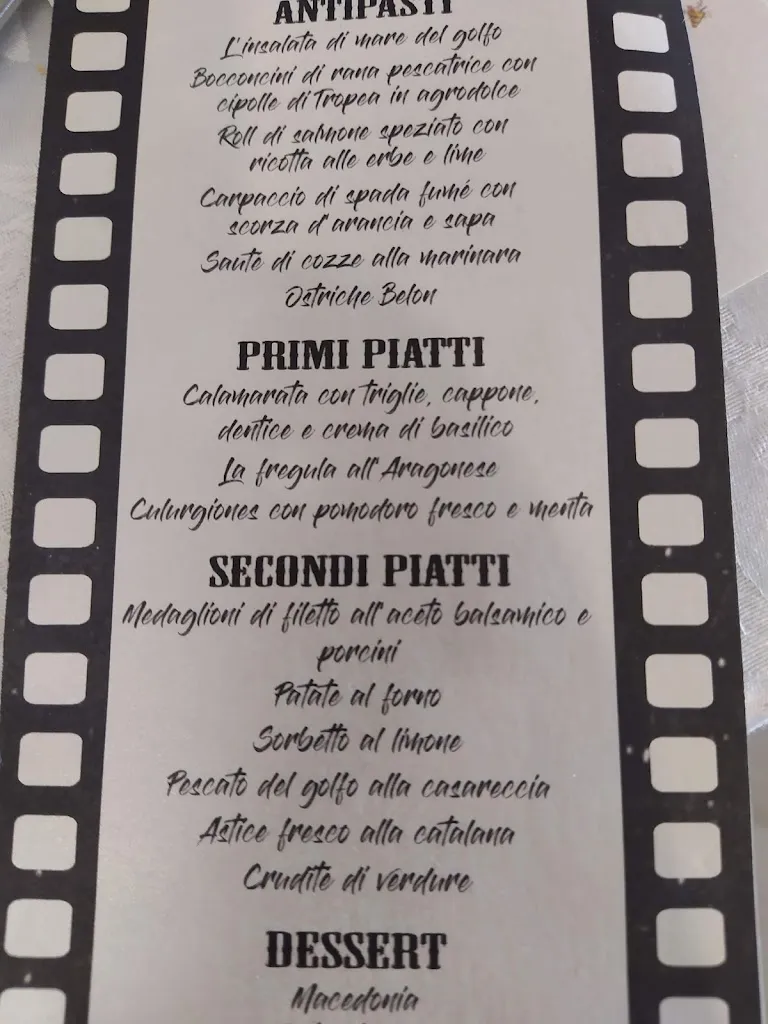 ANTIPASTI
L'insalata di mare del golfo
Bocconcini di rana pescatrice con
cipolle di Tropea in agrodolce
Roll di salmone speziato con
ricotta alle erbe e lime
Carpaccio di spada fumé con
scorza d'arancia e sapa
Sauté di cozze alla marinara
Ostriche Belon
PRIMI PIATTI
Calamarata con triglie, cappone,
dentice e crema di basilico
La fregula all'Aragonese
Culurgiones con pomodoro fresco e menta
SECONDI PIATTI
Medaglioni di filetto all'aceto balsamico e
porcini
Patate al forno
Sorbetto al limone
Pescato del golfo alla casareccia
Astice fresco alla catalana
Crudité di verdure
DESSERT
Macedonia